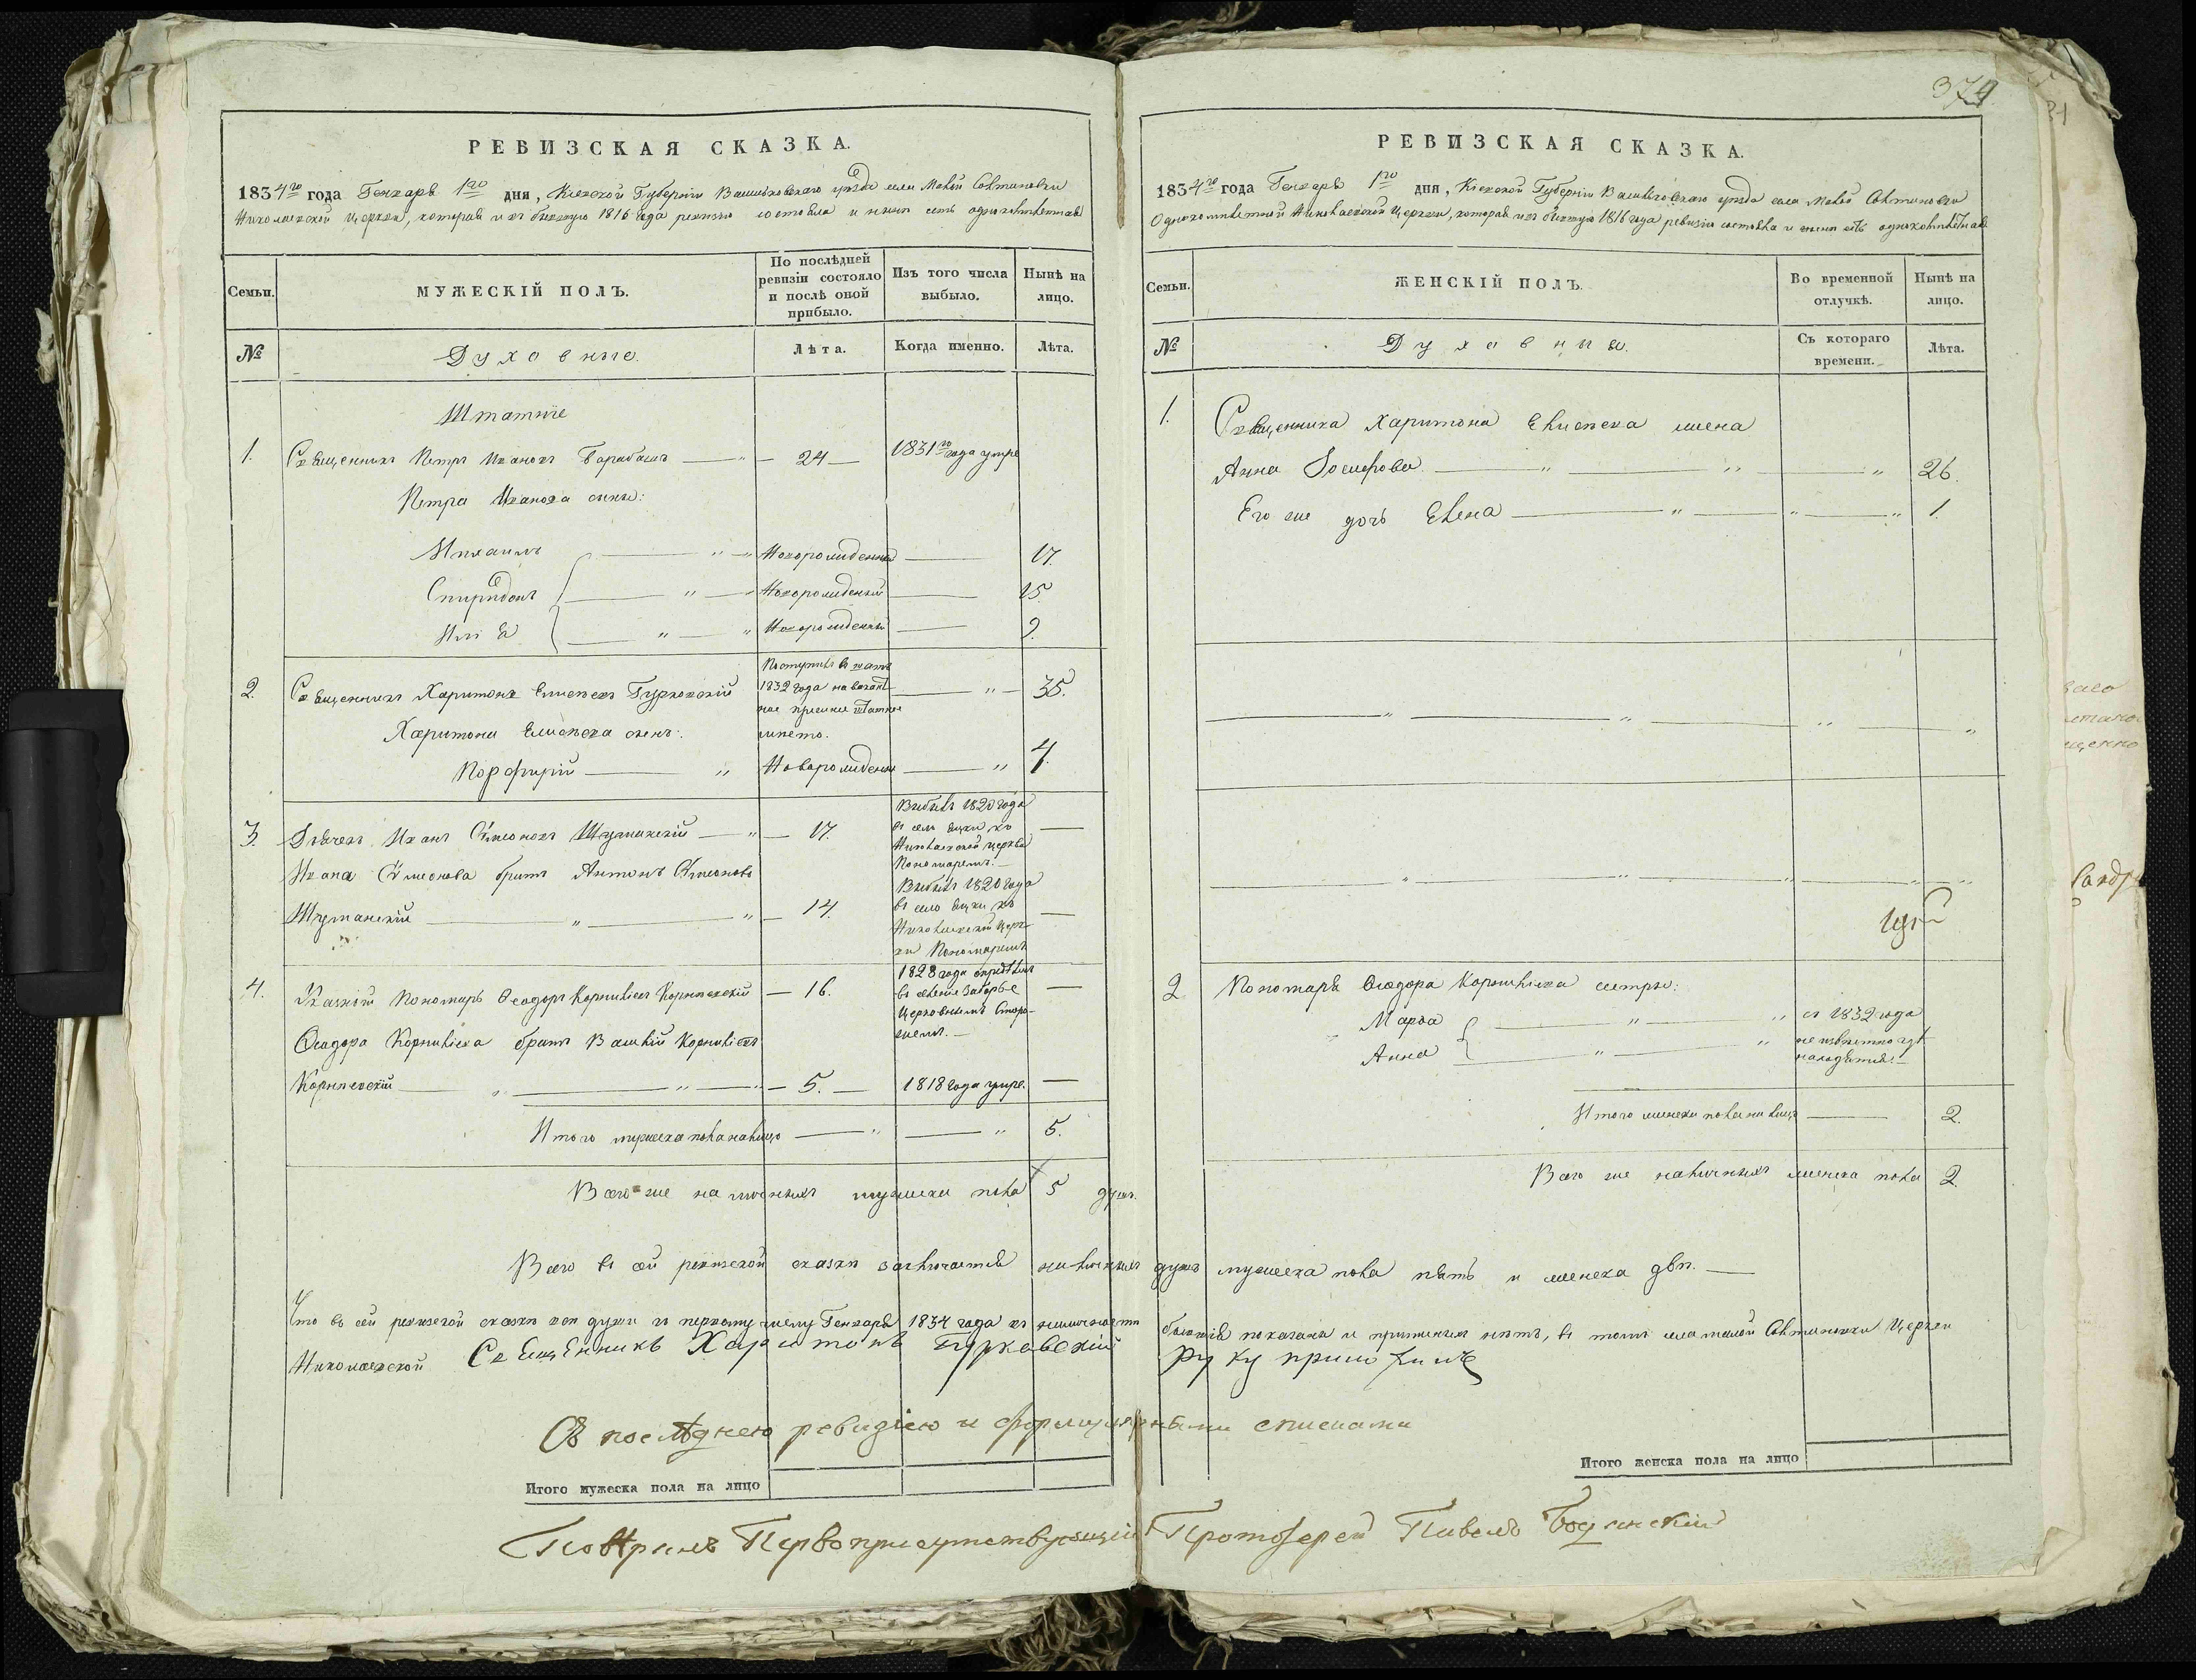 379
РЕВИЗСКАЯ СКАЗКА.
1834го года Генваря 1го дня, Кіевской Губерніи Васильковскаго уѣзда села Малой Солтановки
Николаевской Церкви, которая и въ бывшую 1816 года ревизію состояла и нынѣ есть одноклиметная
Семьи.
МУЖЕСКІЙ ПОЛЪ.
По послѣдней ревизіи состояло и послѣ оной прибыло.
Изъ того числа выбыло.
Нынѣ на лицо.
№
Духовные.
Лѣта.
Когда именно.
Лѣта.
Штатные
1. Священникъ Петръ Ивановъ Барабашъ — 24 — 1831го года умре
Петра Иванова сыны:
Михаилъ — " — Новорожденный — 17.
Спиридонъ — " — Новорожденный — 15.
Илія — " — " Новорожденный — 9.
2. Священникъ Харитонъ Елисеевъ Гурковскій
Поступилъ въ штатъ
1832 года на вакант-
ное прежнее штатное
мѣсто.
— " — 35.
Харитона Елисеева сынъ:
Порфирій — " Новорожденный — " 4.
3. Дьячекъ Иванъ Симеоновъ Шуманскій — " — 17.
Выбылъ 1820 года
въ село Яцки къ
Николаевской церкви
Пономаремъ. —
Ивана Симеонова братъ Антонъ Симеоновъ
Шуманскій — " — " — 14.
Выбылъ 1820 года
въ село Яцки къ
Николаевской Церк-
ви Пономаремъ
4. Указный Пономарь Ѳеодоръ Корнилевъ Корніевскій — 16.
1828 года опредѣленъ
въ селеніе Заборье
Церковнымъ Сторо-
жемъ. —
Ѳеодора Корниліева братъ Василій Корниліевъ
Корніевскій — " — " — 5. — 1818 года умре. —
Итого мужеска пола на лицо — " — " 5.
Всего же наличныхъ мужеска пола 5 душъ.
РЕВИЗСКАЯ СКАЗКА.
1834го года Генваря 1го дня, Кіевской Губерніи Васильковскаго уѣзда села Малой Солтановки
Одноклиметной Николаевской Церкви, которая и въ бывшую 1816 года ревизію состояла и нынѣ есть одноклиметная
Семьи.
ЖЕНСКІЙ ПОЛЪ.
Во временной отлучкѣ.
Нынѣ на лицо.
№
Духовныя.
Съ котораго времени.
Лѣта.
1. Священника Харитона Елисеева жена
Анна Іосифова — " — " — " 26.
Его же дочь Елена — " — " — " 1.
2. Пономаря Ѳеодора Корниліева сестры:
Марѳа — " — "
Анна — " — "
съ 1832 года
неизвѣстно гдѣ
находятся. —
Итого женска пола на лицо — 2.
Всего же наличныхъ женска пола 2.
Всего въ сей ревизской сказкѣ заключается наличныхъ душъ мужеска пола пять и женска двѣ. —
Что въ сей ревизской сказкѣ все души къ первому числу Генваря 1834 года въ наличности бывшія показаны и прописныхъ нѣтъ, въ томъ села Малой Солтановки Церкви
Николаевской Священникъ Харитонъ Гурковскій руку приложилъ
Съ послѣднею ревизіею и формулярными списками
Итого мужеска пола на лицо
Итого женска пола на лицо
Повѣрялъ Первоприсутствующій Протоіерей Павелъ